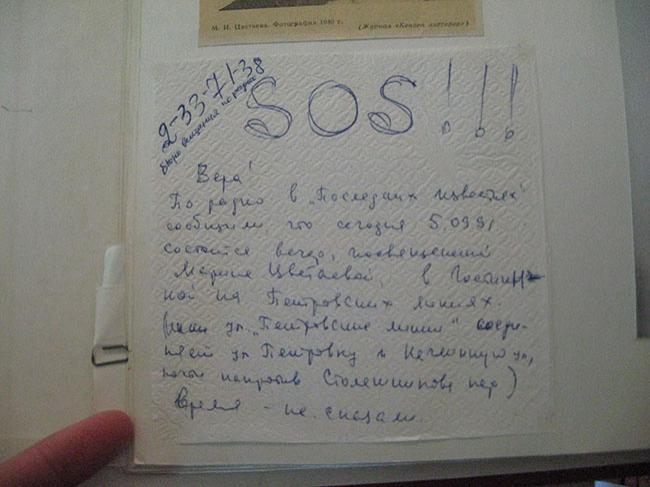 М. И. Цветаева. Фотография 1940 г.
2-33-71-38
SOS!!!
Вера!
По радио в "Последних известиях"
сообщили, что сегодня 5.09 91
состоится вечер, посвященный
Марине Цветаевой, в Гостин-
ной на Петровских линиях.
ул. "Петровские линии" соеди-
няет ул Петровку и Неглинную ул,
почти напротив Столешникова пер)
Время - не сказали.